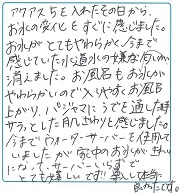 アクアス5を入れたその日から、
お水の変化をすぐに感じました。
お水がとてもやわらかく、今まで
感じていた水道水の嫌な匂いが
消えました。お風呂もお水が
やわらかいので入りやすく、お風呂
上がり、パジャマにうでを通した時
サラッとした肌ざわりを感じました。
今までウォーターサーバーを使用して
いましたが、家中のお水がきれい
になって、サーバーいらずで
とても嬉しいです!!導入して本当に
良かったです。